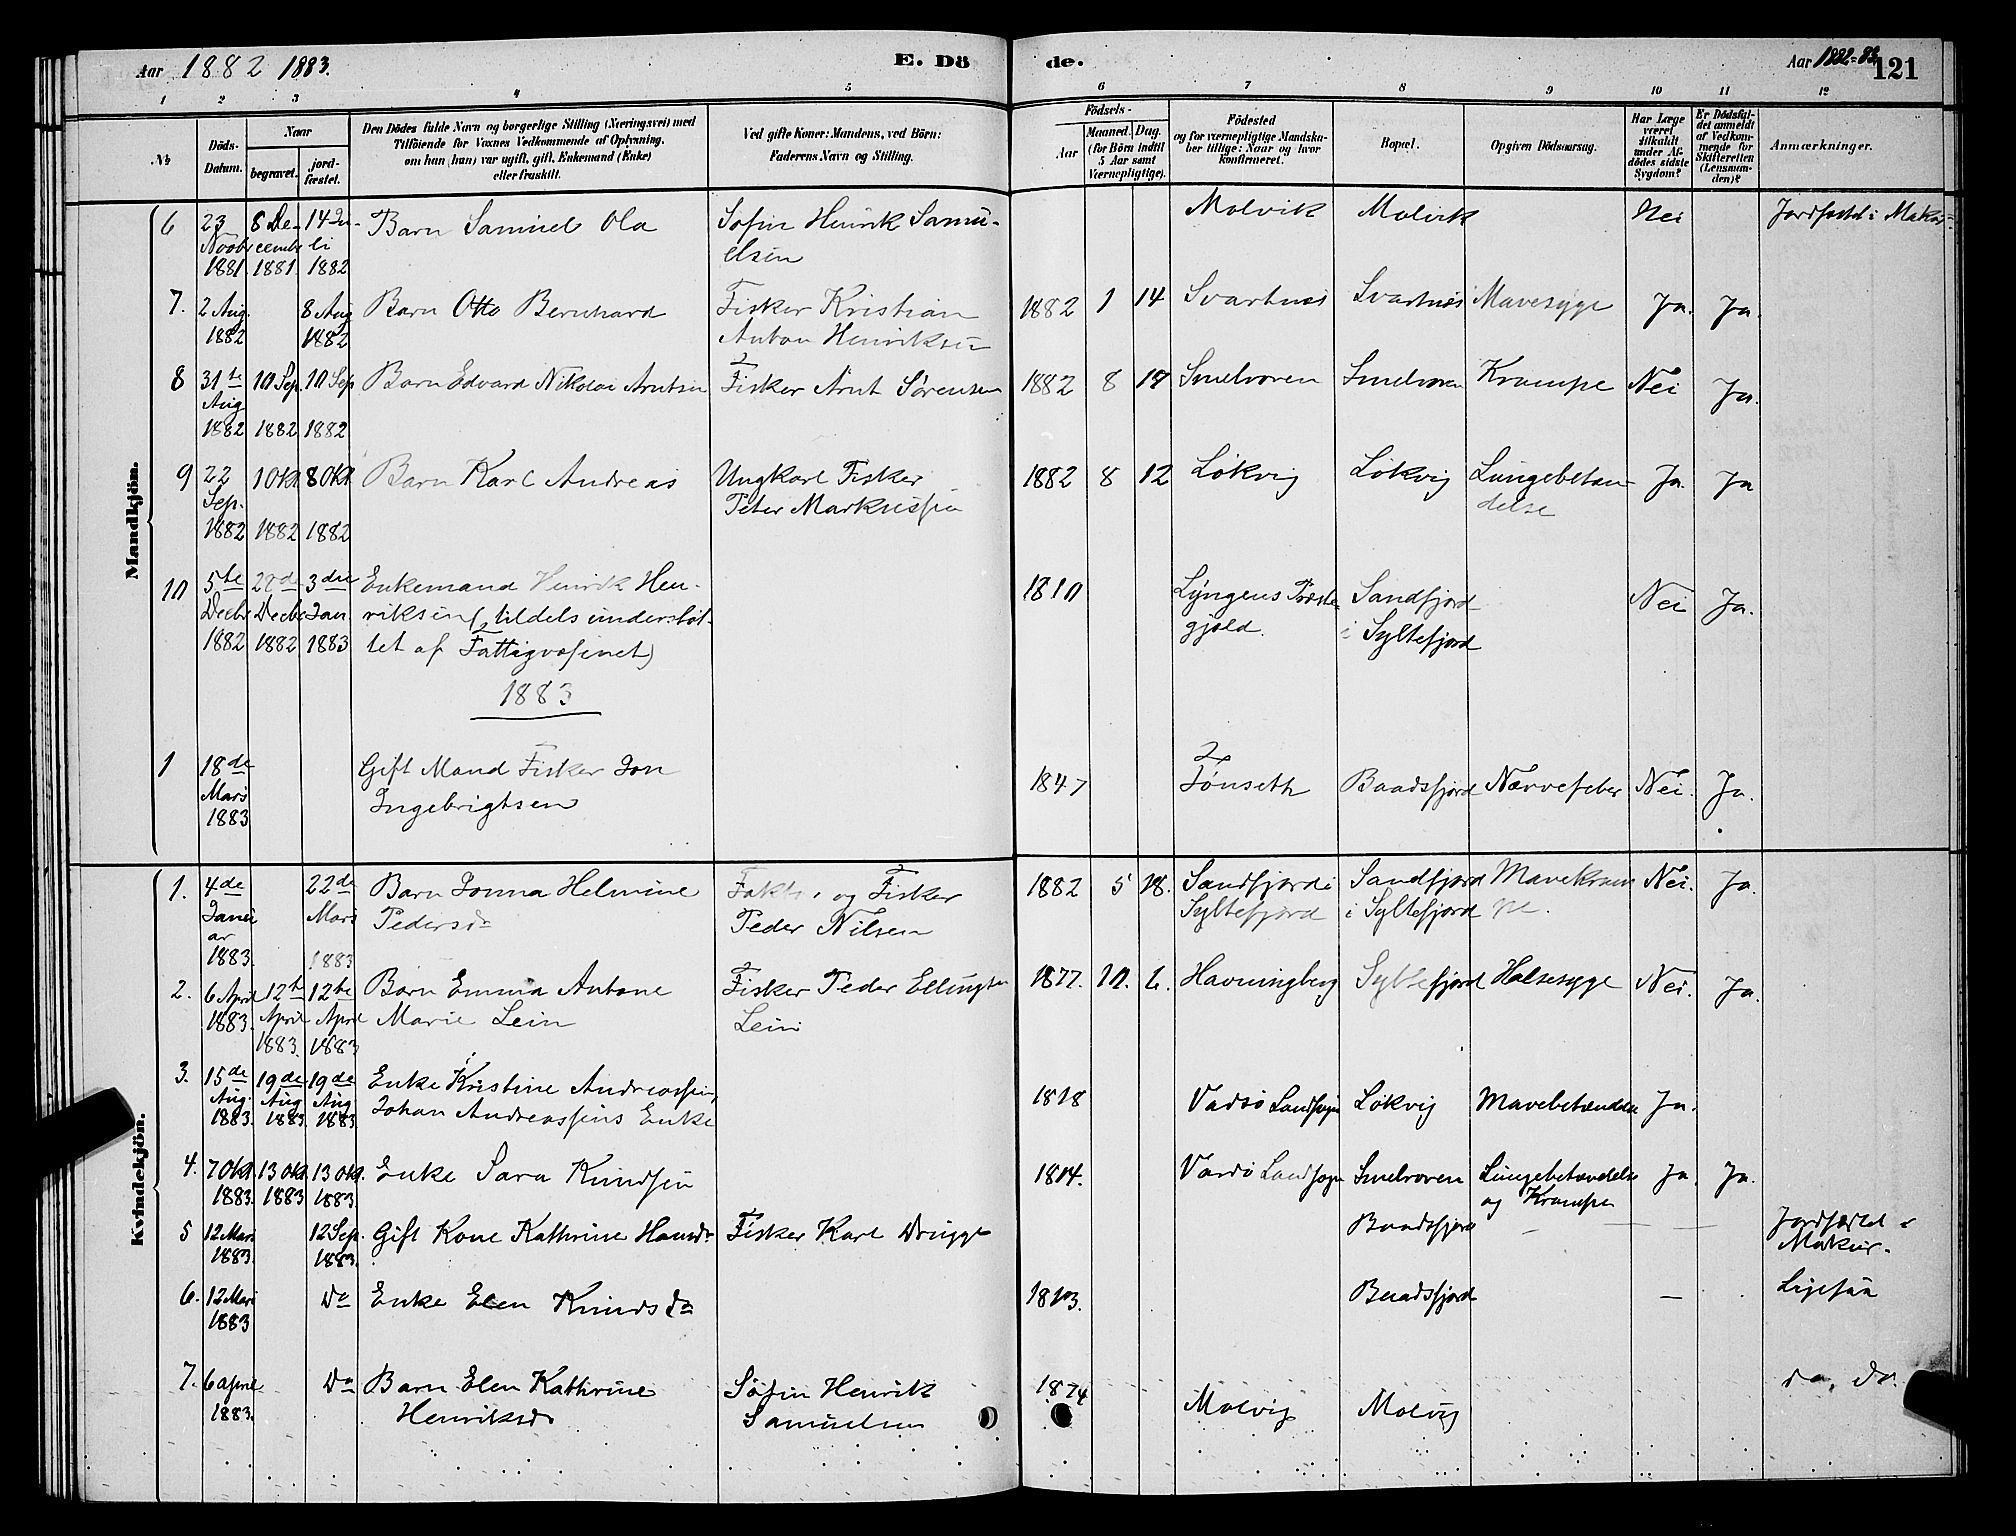 Aar 1882 1883.
E. Dö
de.
Aar 1882-83.
121
1 2 3 4 5 6 7 8 9 10 11 12
No
Döds-
Datum.
Naar
begravet.
jord-
fæstet.
Den Dödes fulde Navn og borgerlige Stilling (Næringsvei) med
Tilföiende for Voxnes Vedkommende af Oplysning,
om han (hun) var ugift, gift, Enkemand (Enke)
eller fraskilt.
Ved gifte Koner: Mandens, ved Börn:
Faderens Navn og Stilling.
Födsels-
Aar
Maaned. Dag.
(for Börn indtil
5 Aar samt
Værnepligtige).
Födested
og for værnepligtige Mandska-
ber tillige: Naar og hvor
konfirmeret.
Bopæl.
Opgiven Dödsaarsag.
Har Læge
været
tilkaldt
under Af-
dödes sidste
Sygdom?
Er Dödsfal-
det anmeldt
af Vedkom-
mende for
Skifteretten
(Lensman-
den)?
Anmærkninger.
Mandkjön.
6 23 8 De- 14 Ju- Barn Samuel Ola Sofin Henrik Samu- Molvik Molvik Nei Jordfæstet i Makur
Novbr cembr li elsen
1881. 1881. 1882
7. 2 Aug. 8 Aug Barn Otto Bernhard Fisker Kristian 1882 1 14 Svartnes Svartnes Mavesyge Ja. Ja.
1882 1882 Anton Henriksen
8 31te 10 Sep. 10 Sep Barn Edvard Nikolai Arntsen Fisker Arnt Sørensen 1882 8 Smelroren Smelroren Krampe Nei Ja.
Aug
1882 1882 1882
9 22 1 Okt 8 Okt Barn Karl Andreas Ungkarl Fisker 1882 8 12 Lökvig Lökvig Lungebetæn- Ja. Ja
Sep. Peter Markussen delse
1882 1882 1882
10 5te 28de 3die Enkemand Henrik Hen- 1810 Lyngens Præste Sandfjord Nei Ja.
Decbr Decbr Jan riksen (tildels understöt- gjeld. i Syltefjord
1882 1882 1883 tet af Fattigvæsenet)
1883
1 18de Gift Mand Fisker Jon 1847 Tönseth Baadsfjord Nervefeber Nei. Ja.
Mars Ingebrigtsen
1883
Kvindekjön.
1. 4de 22de Barn Jonna Helmine og Fisker 1882 5 18. Sandfjord i Sandfjord Mavekram Nei. Ja.
Janu Mars Pedersd Peder Nilsen Syltefjord i Syltefjord pe.
ar
1883. 1883
2. 6 April 12te 12te Barn Emma Antone Fisker Peder Ellingsen 1877. 10. 6. Havningberg Syltefjord Halssyge Nei. Ja.
1883. April April Marie Lein Lein
1883. 1883
3. 15de 19de 19de Enke Kristine Andreassen, 1818 Vadsö Landsogn Lökvig Mavebetændelse Ja.
Aug. Aug Aug Johan Andreassens Enke
1883. 1883. 1883
4. 7 Okt. 13 Okt. 13 Okt. Enke Sara Knudsen 1804. Vardö Landsogn Smelroren Lungebetændelse Ja. Ja.
1883. 1883 1883. og Krampe
5 12 Mars 12 Sep. Gift Kone Kathrine Hansdr Fisker Karl Baadsfjord — — — Jordfæstet i
1883. 1883. Makur.
6. 12 Mars Do Enke Elen Knudsda 1803. Baadsfjord — Ligesaa
1883
7. 6 April Do Barn Elen Kathrine Sofin Henrik 1874 Molvig Molvig do. do.
1883. Henriksd Samuelsen